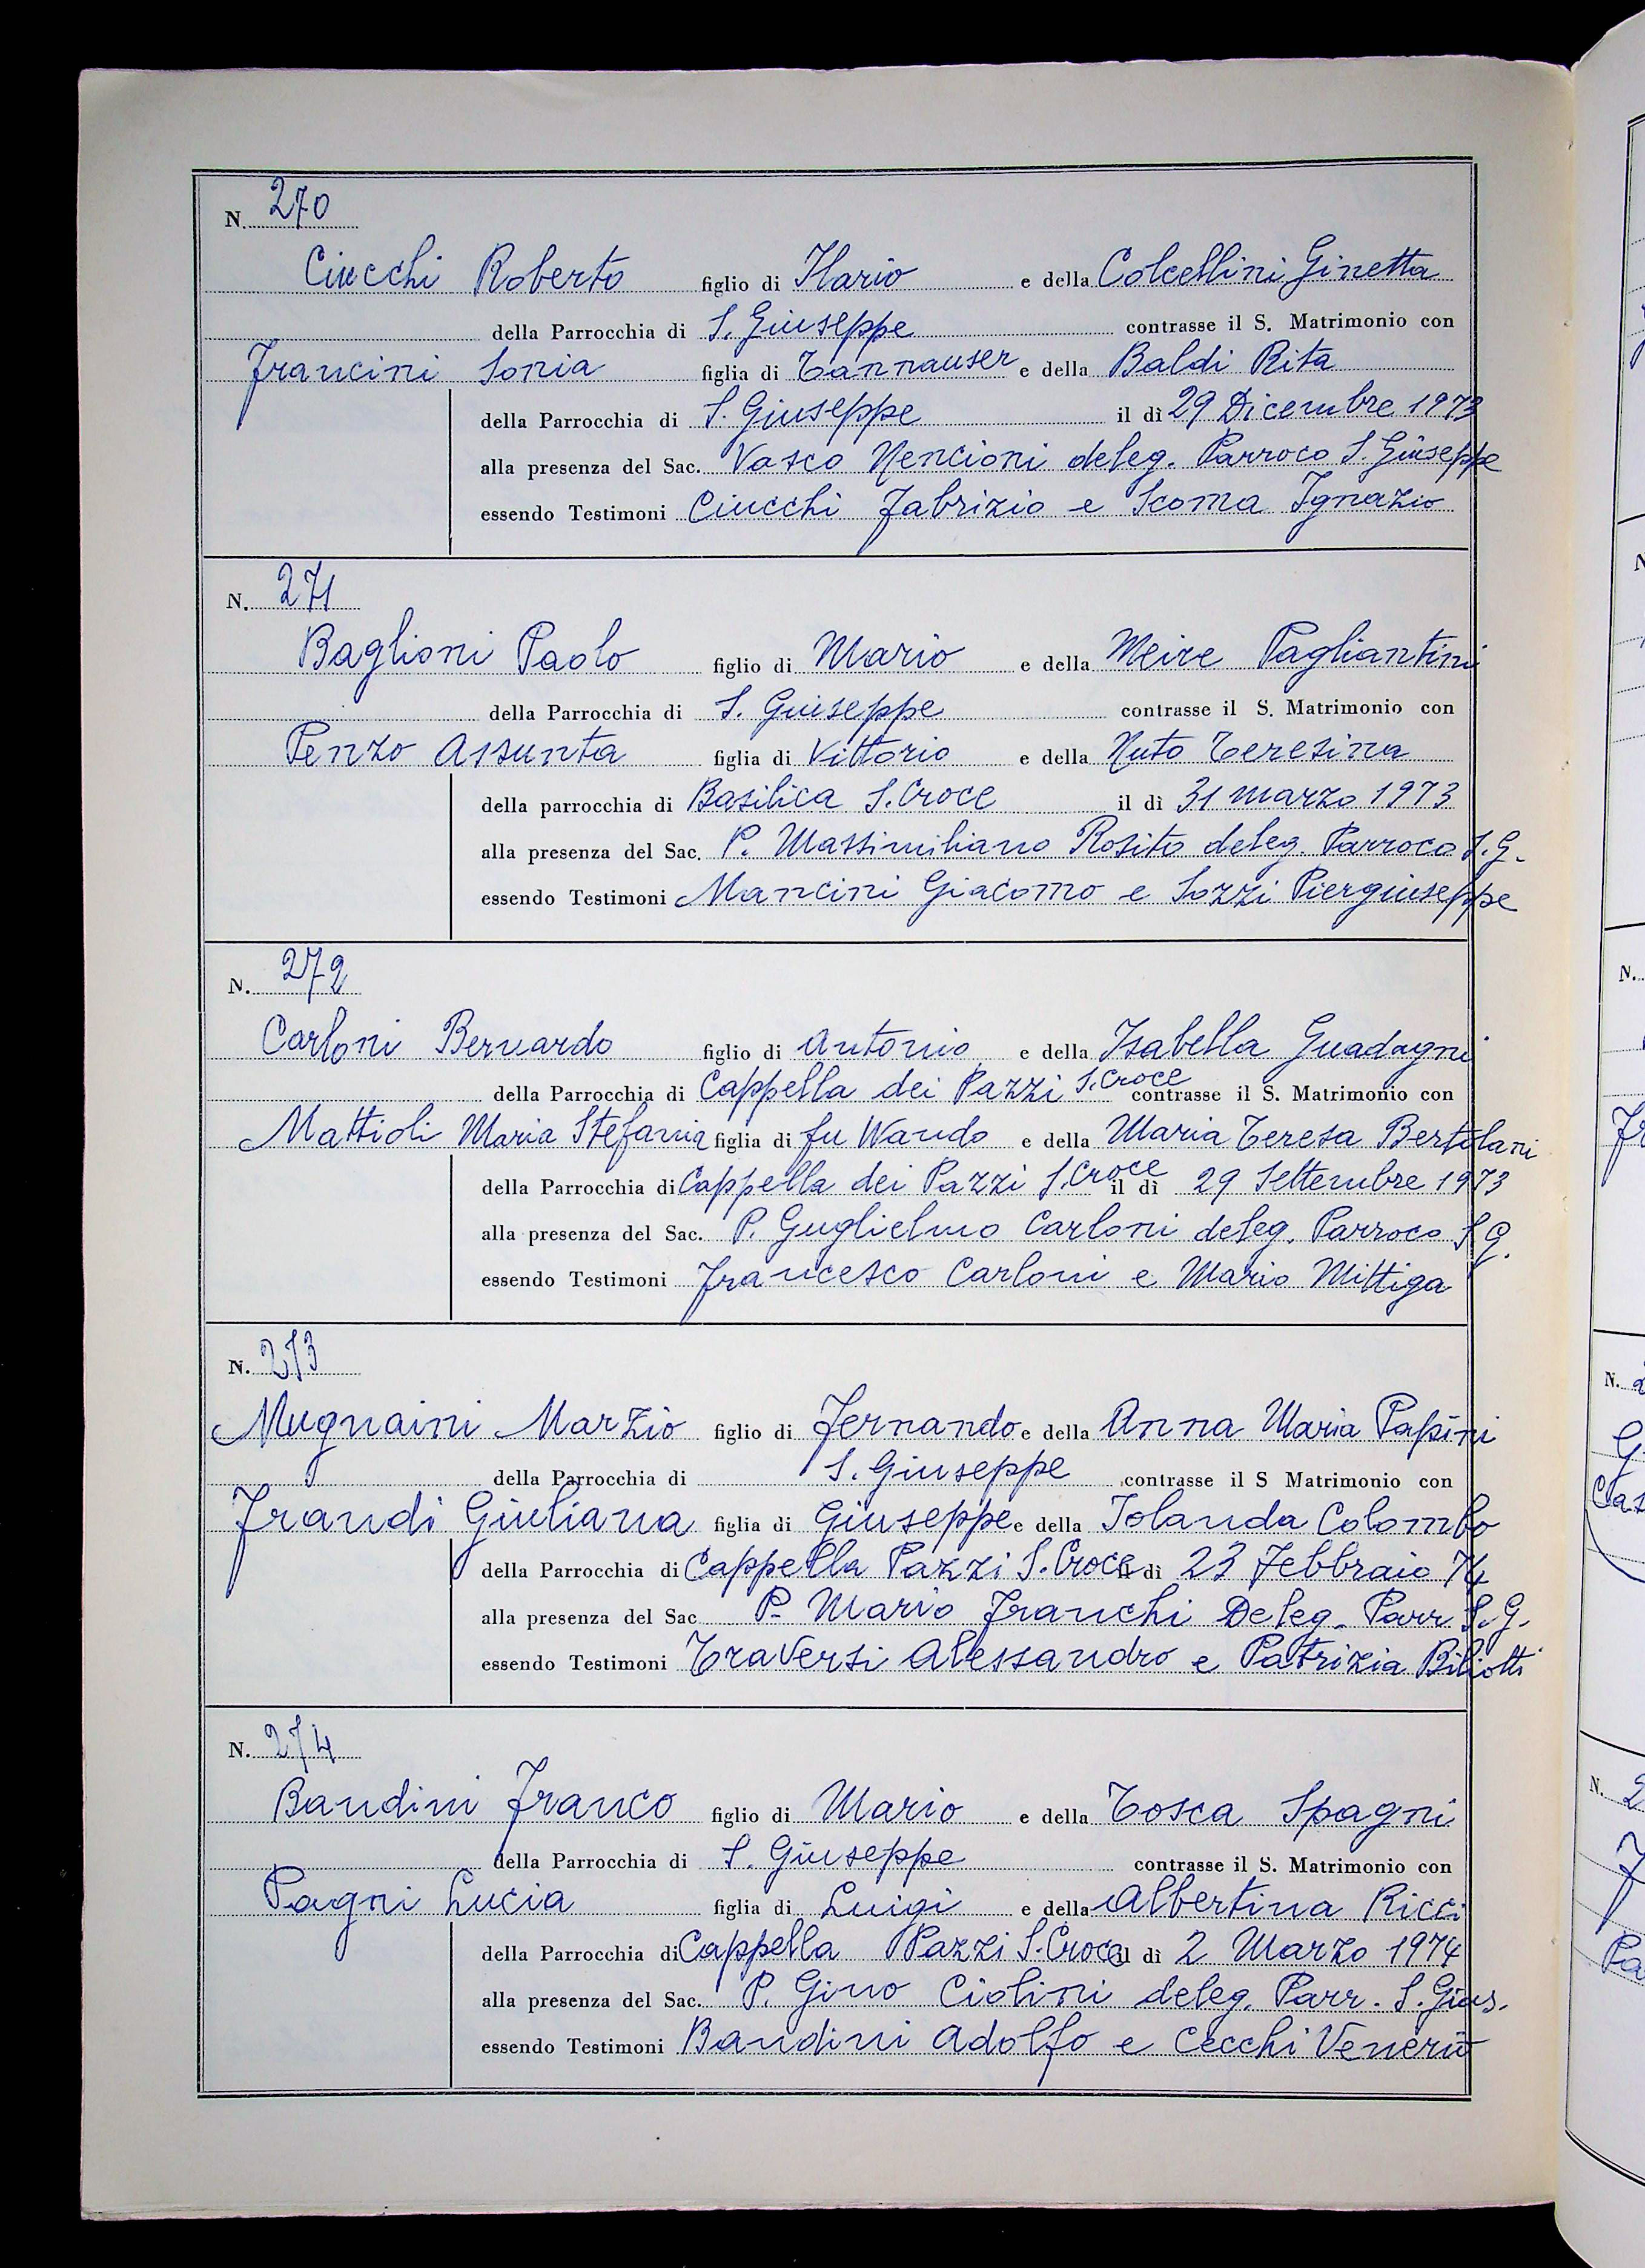 N. 270
Ciucchi Roberto figlio di Ilario e della Colcellini Ginetta
della Parrocchia di S. Giuseppe contrasse il S. Matrimonio con
Francini Sonia figlia di Tannauser e della Baldi Rita
della Parrocchia di S. Giuseppe il dì 29 Dicembre 1973
alla presenza del Sac. Vasco Nencioni deleg. Parroco S. Giuseppe
essendo Testimoni Ciucchi Fabrizio e Scoma Ignazio
N. 271
Baglioni Paolo figlio di Mario e della Meire Pagliantini
della Parrocchia di S. Giuseppe contrasse il S. Matrimonio con
Penzo Assunta figlia di Vittorio e della Nuto Teresina
della parrocchia di Basilica S. Croce il dì 31 marzo 1973
alla presenza del Sac. P. Massimiliano Rosito deleg. Parroco S.G.
essendo Testimoni Mancini Giacomo e Sozzi Piergiuseppe
N. 272
Carloni Bernardo figlio di Antonio e della Isabella Guadagni
della Parrocchia di Cappella dei Pazzi S. Croce contrasse il S. Matrimonio con
Mattioli Maria Stefania figlia di fu Wando e della Maria Teresa Bertolani
della Parrocchia di Cappella dei Pazzi S. Croce il dì 29 Settembre 1973
alla presenza del Sac. P. Guglielmo Carloni deleg. Parroco S G.
essendo Testimoni Francesco Carloni e Mario Mittiga
N. 273
Mugnaini Marzio figlio di Fernando e della Anna Maria Papini
della Parrocchia di S. Giuseppe contrasse il S Matrimonio con
Frandi Giuliana figlia di Giuseppe e della Iolanda Colombo
della Parrocchia di Cappella Pazzi S. Croce il dì 23 Febbraio 74
alla presenza del Sac P. Mario Franchi Deleg. Parr S. G.
essendo Testimoni Traversi Alessandro e Patrizia Biliotti
N. 274
Bandini Franco figlio di Mario e della Tosca Spagni
della Parrocchia di S. Giuseppe contrasse il S. Matrimonio con
Pagni Lucia figlia di Luigi e della Albertina Ricci
della Parrocchia di Cappella Pazzi S. Croce il dì 2 Marzo 1974
alla presenza del Sac. P. Gino Ciolini deleg. Parr. S. Gius.
essendo Testimoni Bandini Adolfo e Cecchi Venerio